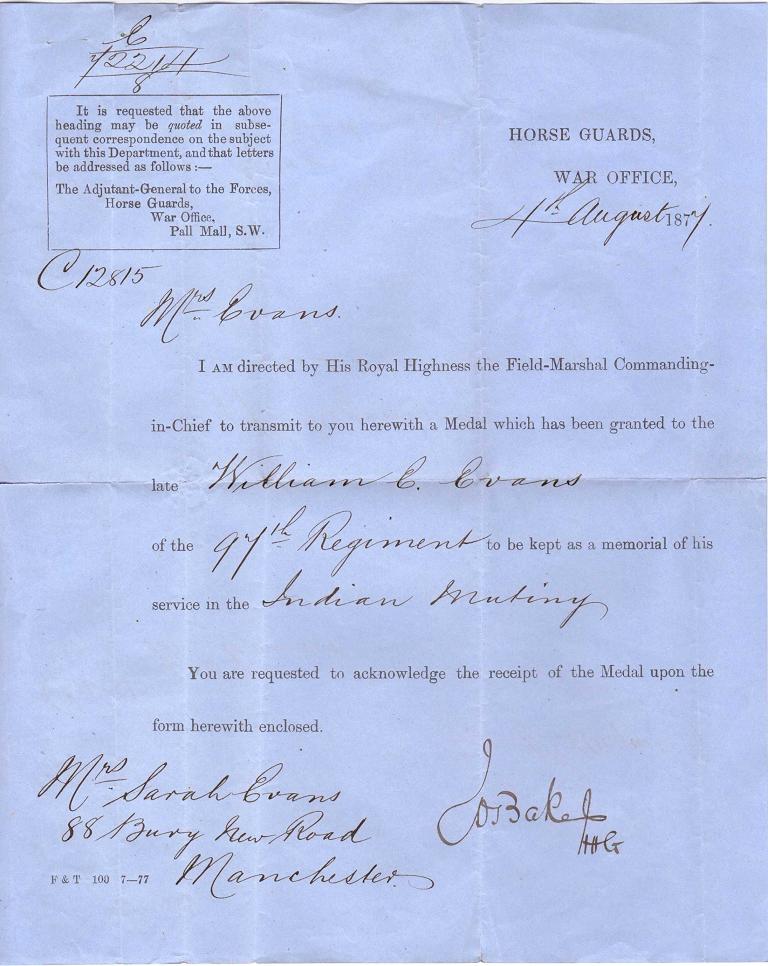 C
12214
8
It is requested that the above
heading may be quoted in subse-
quent correspondence on the subject
with this Department, and that letters
be addressed as follows :—
The Adjutant-General to the Forces,
Horse Guards,
War Office,
Pall Mall, S.W.
HORSE GUARDS,
WAR OFFICE,
4th August 1877.
C12815
Mrs Evans.
I AM directed by His Royal Highness the Field-Marshal Commanding-
in-Chief to transmit to you herewith a Medal which has been granted to the
late William C. Evans
of the 97th Regiment to be kept as a memorial of his
service in the Indian Mutiny
You are requested to acknowledge the receipt of the Medal upon the
form herewith enclosed.
Mrs Sarah Evans
88 Bury New Road
Manchester.
Baker
F & T 100 7—77